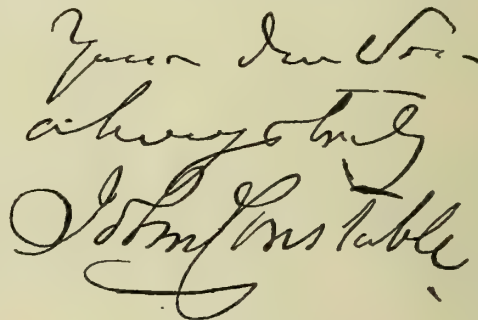 Yours Dear Sir
always truly
John Constable